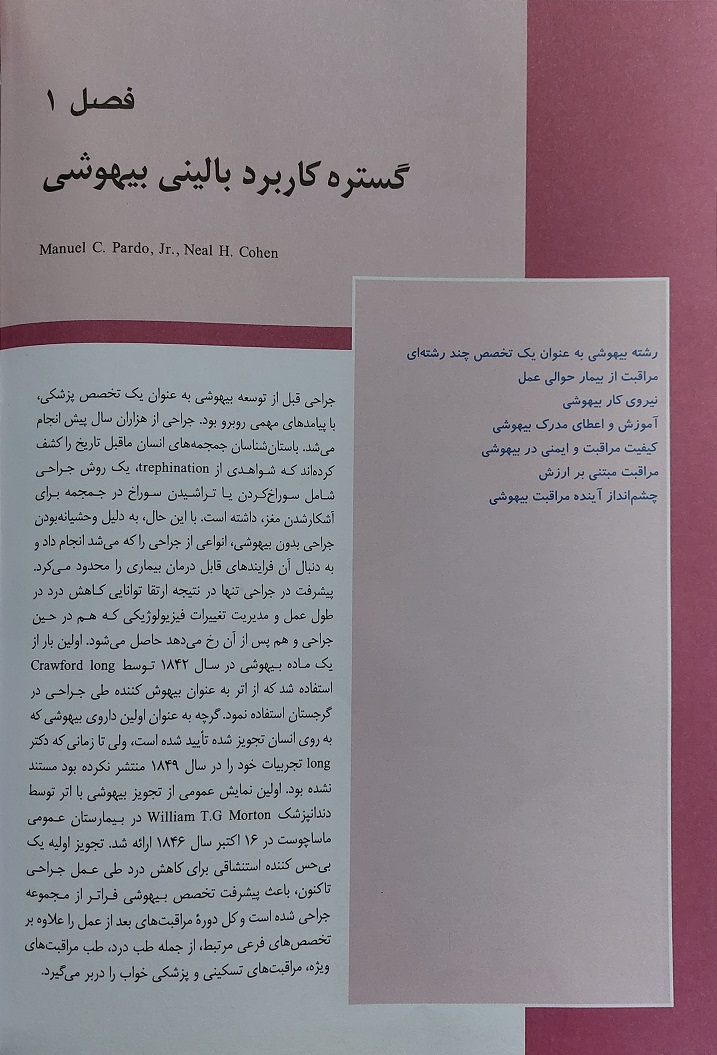 فصل ۱
گستره کاربرد بالینی بیهوشی
Manuel C. Pardo, Jr., Neal H. Cohen
رشته بیهوشی به عنوان یک تخصص چند رشته‌ای
مراقبت از بیمار حوالی عمل
نیروی کار بیهوشی
آموزش و اعطای مدرک بیهوشی
کیفیت مراقبت و ایمنی در بیهوشی
مراقبت مبتنی بر ارزش
چشم‌انداز آینده مراقبت بیهوشی
جراحی قبل از توسعه بیهوشی به عنوان یک تخصص پزشکی،
با پیامدهای مهمی روبرو بود. جراحی از هزاران سال پیش انجام
می‌شد. باستان‌شناسان جمجمه‌های انسان ماقبل تاریخ را کشف
کرده‌اند که شواهدی از trephination، یک روش جراحی
شامل سوراخ‌کردن یا تراشیدن سوراخ در جمجمه برای
آشکارشدن مغز، داشته است. با این حال، به دلیل وحشیانه‌بودن
جراحی بدون بیهوشی، انواعی از جراحی را که می‌شد انجام داد و
به دنبال آن فرایندهای قابل درمان بیماری را محدود می‌کرد.
پیشرفت در جراحی تنها در نتیجه ارتقا توانایی کاهش درد در
طول عمل و مدیریت تغییرات فیزیولوژیکی که هم در حین
جراحی و هم پس از آن رخ می‌دهد حاصل می‌شود. اولین بار از
یک ماده بیهوشی در سال ۱۸۴۲ توسط Crawford long
استفاده شد که از اتر به عنوان بیهوش کننده طی جراحی در
گرجستان استفاده نمود. گرچه به عنوان اولین داروی بیهوشی که
به روی انسان تجویز شده تأیید شده است، ولی تا زمانی که دکتر
long تجربیات خود را در سال ۱۸۴۹ منتشر نکرده بود مستند
نشده بود. اولین نمایش عمومی از تجویز بیهوشی با اتر توسط
دندانپزشک William T.G Morton در بیمارستان عمومی
ماساچوست در ۱۶ اکتبر سال ۱۸۴۶ ارائه شد. تجویز اولیه یک
بی‌حس کننده استنشاقی برای کاهش درد طی عمل جراحی
تاکنون، باعث پیشرفت تخصص بیهوشی فراتر از مجموعه
جراحی شده است و کل دورهٔ مراقبت‌های بعد از عمل را علاوه بر
تخصص‌های فرعی مرتبط، از جمله طب درد، طب مراقبت‌های
ویژه، مراقبت‌های تسکینی و پزشکی خواب را دربر می‌گیرد.